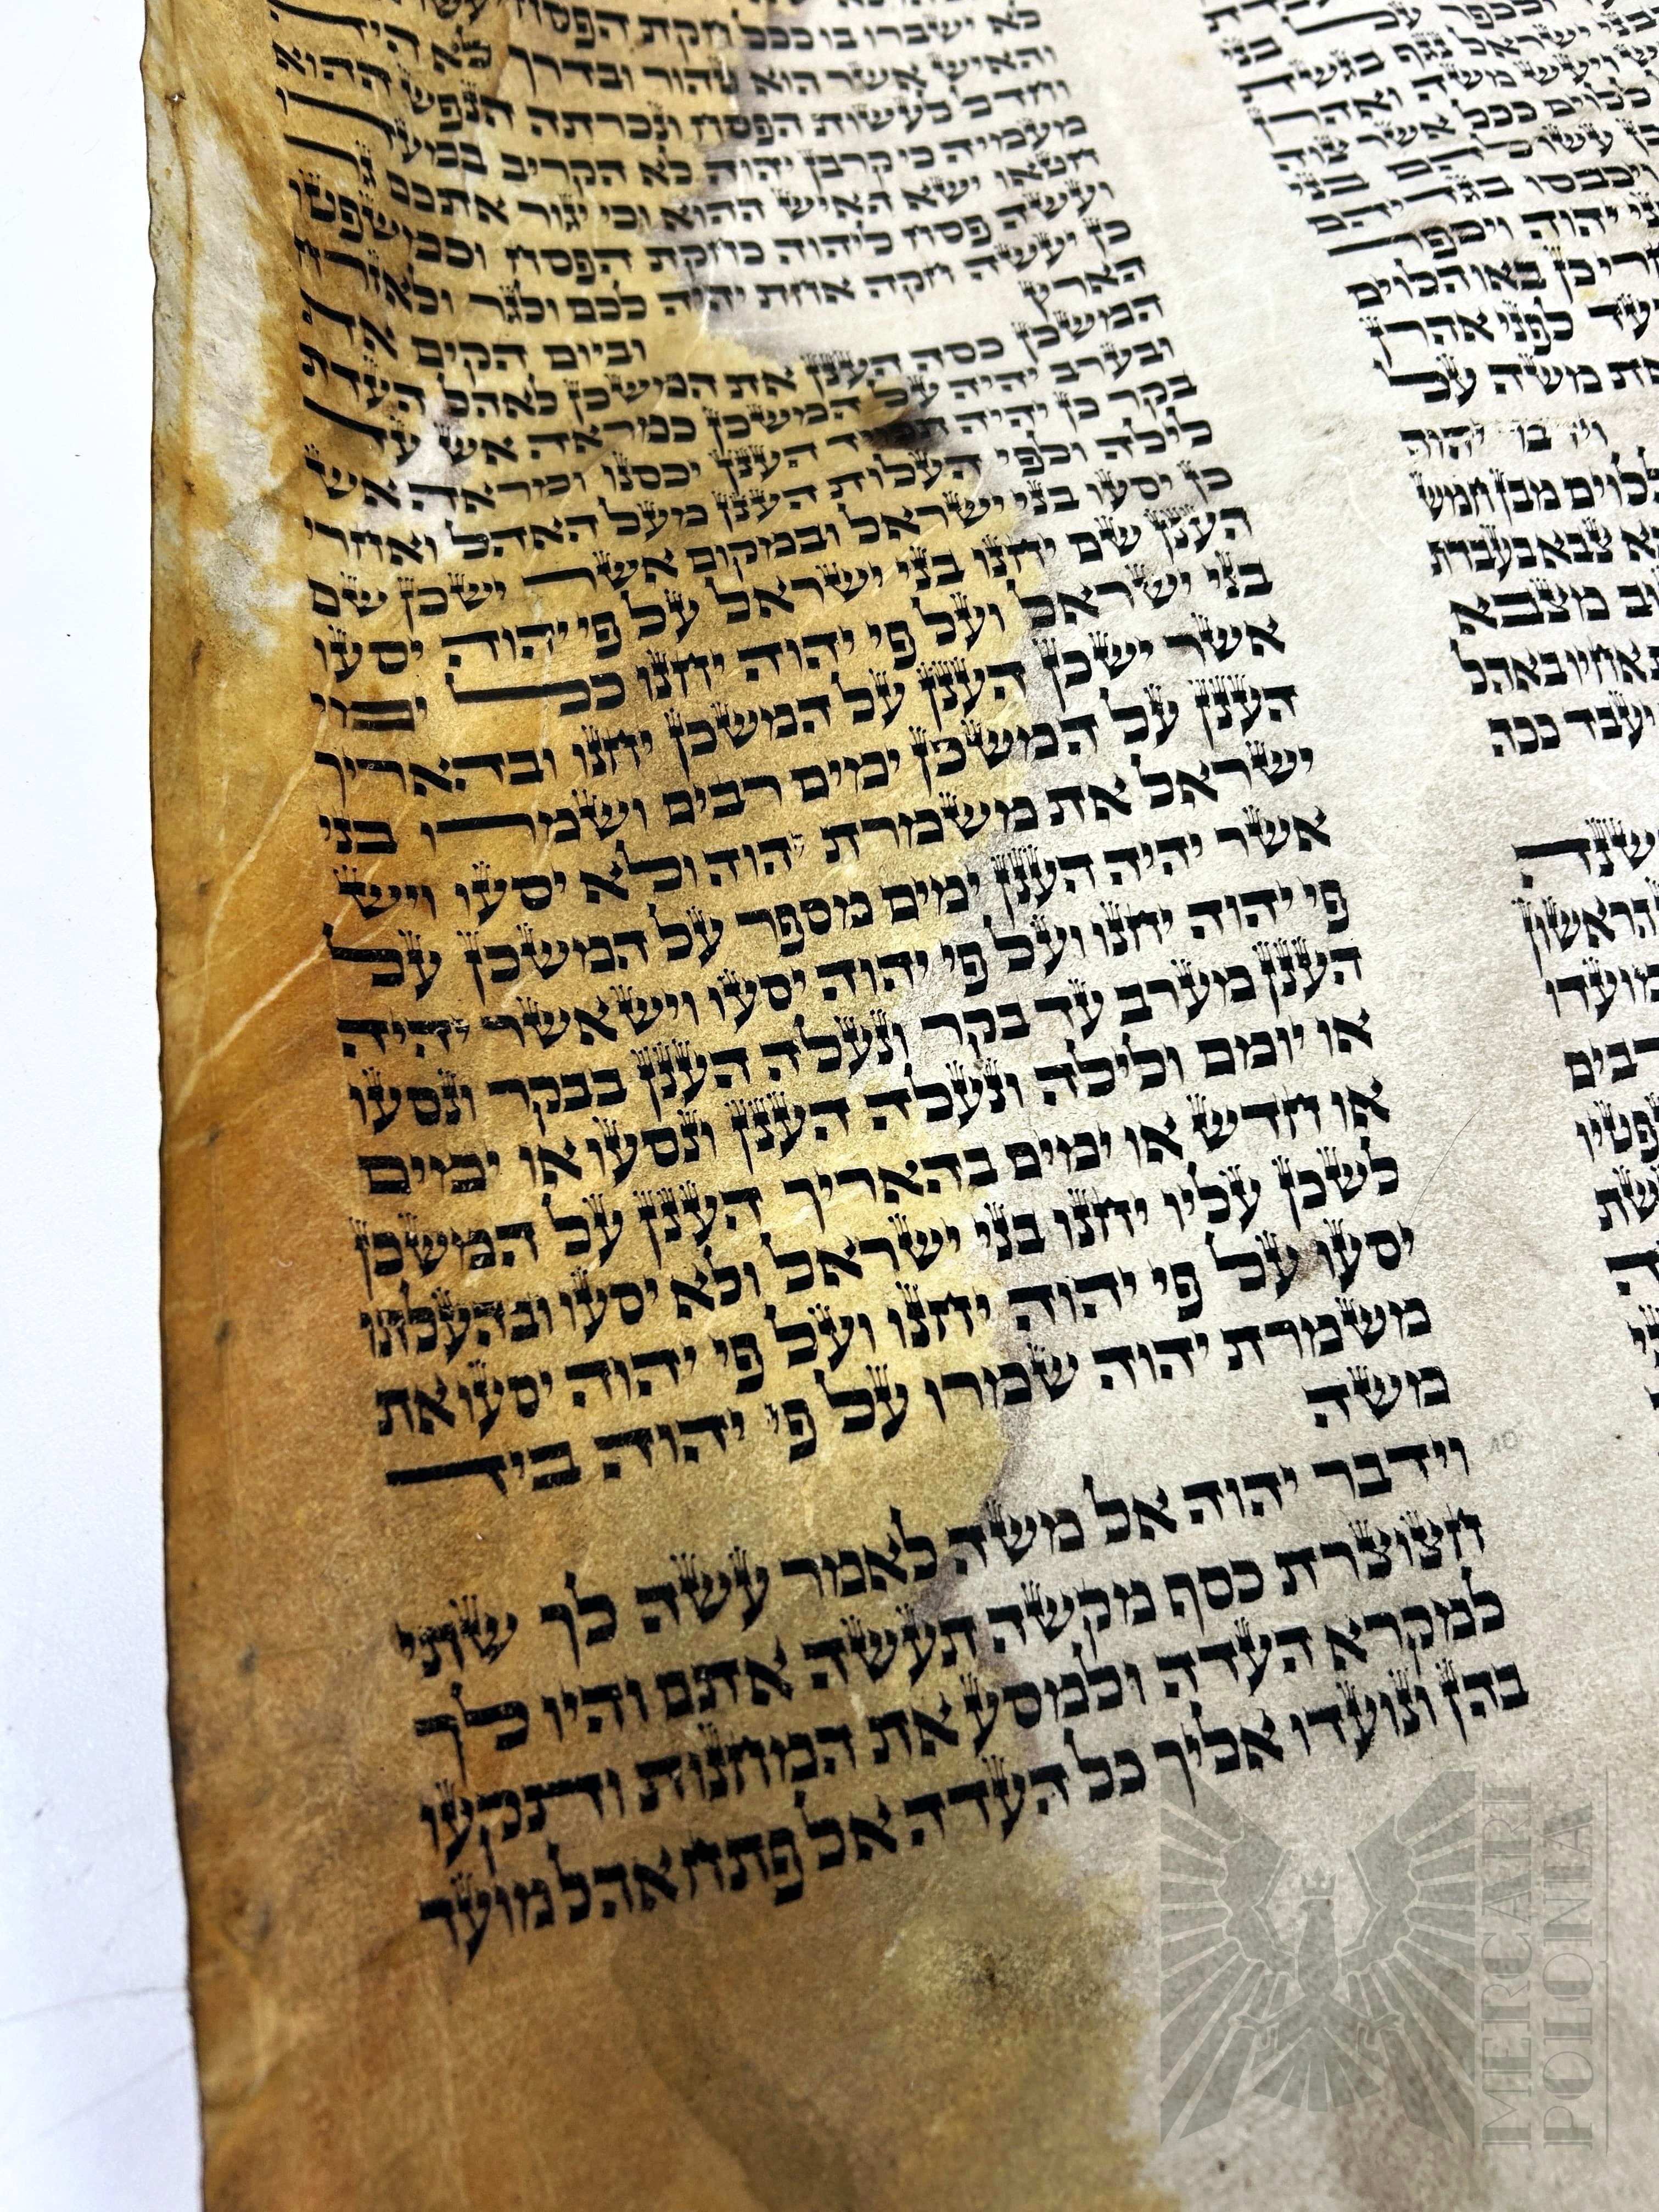 ולכפר על
בני ישראל נגף בגשת
ויעש משה ואהרן
ללוים ככל אשר צוה
כן עשו להם בני
ויכבסו בגדיהם
יהוה ויכפר
כן באו הלוים
לפני אהרן
את משה על
יהוה
ללוים מבן חמש
צבא בעבדת
מצבא
אחיו באהל
יעבד ככה
הראשון
רבים
לא ישברו בו ככל חקת הפסח
והאיש אשר הוא טהור ובדרך לא היה
וחדל לעשות הפסח ונכרתה הנפש ההוא
מעמיה כי קרבן יהוה לא הקריב במעדו
חטאו ישא האיש ההוא וכי יגור אתכם גר
ועשה פסח ליהוה כחקת הפסח וכמשפטו
כן יעשה חקה אחת יהיה לכם ולגר ולאזרח
הארץ וביום הקים את
המשכן כסה הענן את המשכן לאהל העדת
ובערב יהיה על המשכן כמראה אש עד
בקר כן יהיה תמיד הענן יכסנו ומראה אש
לילה ולפי העלות הענן מעל האהל ואחרי
כן יסעו בני ישראל ובמקום אשר ישכן שם
הענן שם יחנו בני ישראל על פי יהוה יסעו
בני ישראל ועל פי יהוה יחנו כל ימי
אשר ישכן הענן על המשכן יחנו ובהאריך
הענן על המשכן ימים רבים ושמרו בני
ישראל את משמרת יהוה ולא יסעו ויש
אשר יהיה הענן ימים מספר על המשכן על
פי יהוה יחנו ועל פי יהוה יסעו ויש אשר יהיה
הענן מערב עד בקר ונעלה הענן בבקר ונסעו
או יומם ולילה ונעלה הענן ונסעו או ימים
או חדש או ימים בהאריך הענן על המשכן
לשכן עליו יחנו בני ישראל ולא יסעו ובהעלתו
יסעו על פי יהוה יחנו ועל פי יהוה יסעו את
משמרת יהוה שמרו על פי יהוה ביד
משה
וידבר יהוה אל משה לאמר עשה לך שתי
חצוצרת כסף מקשה תעשה אתם והיו לך
למקרא העדה ולמסע את המחנות ותקעו
בהן ונועדו אליך כל העדה אל פתח אהל מועד
MERCARI
POLONIA